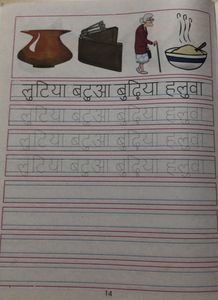 लुटिया बटुआ बुढ़िया हलुवा
लुटिया बटुआ बुढ़िया हलुवा
लुटिया बटुआ बुढ़िया हलुवा
लुटिया बटुआ बुढ़िया हलुवा
14